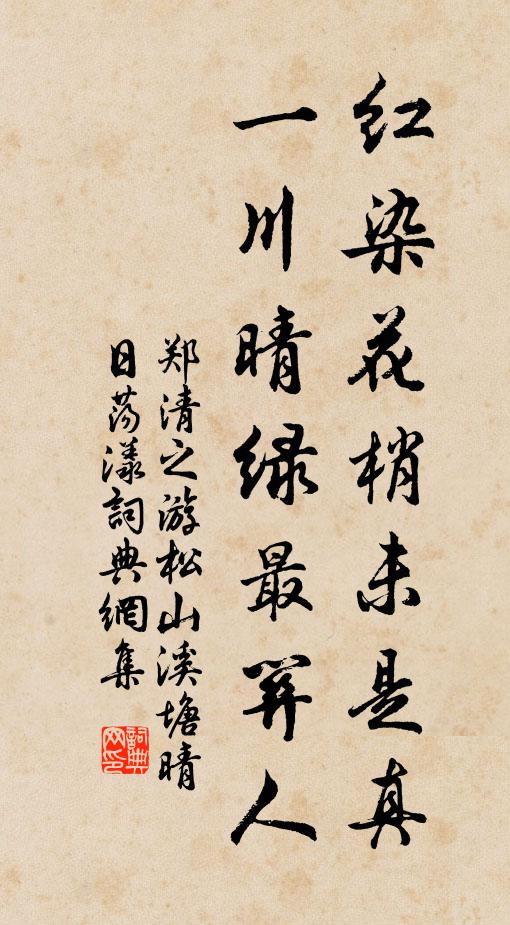 红染花梢未是真
一川晴绿最人
郑清之游松山溪塘晴
日荡漾詞典網集
詞典
网印